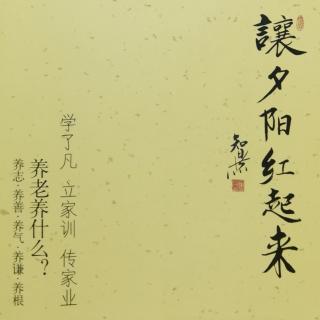 讓夕阳红起来
学了凡 立家训 传家业
养老养什么？
养志·养善·养气·养谦·养根